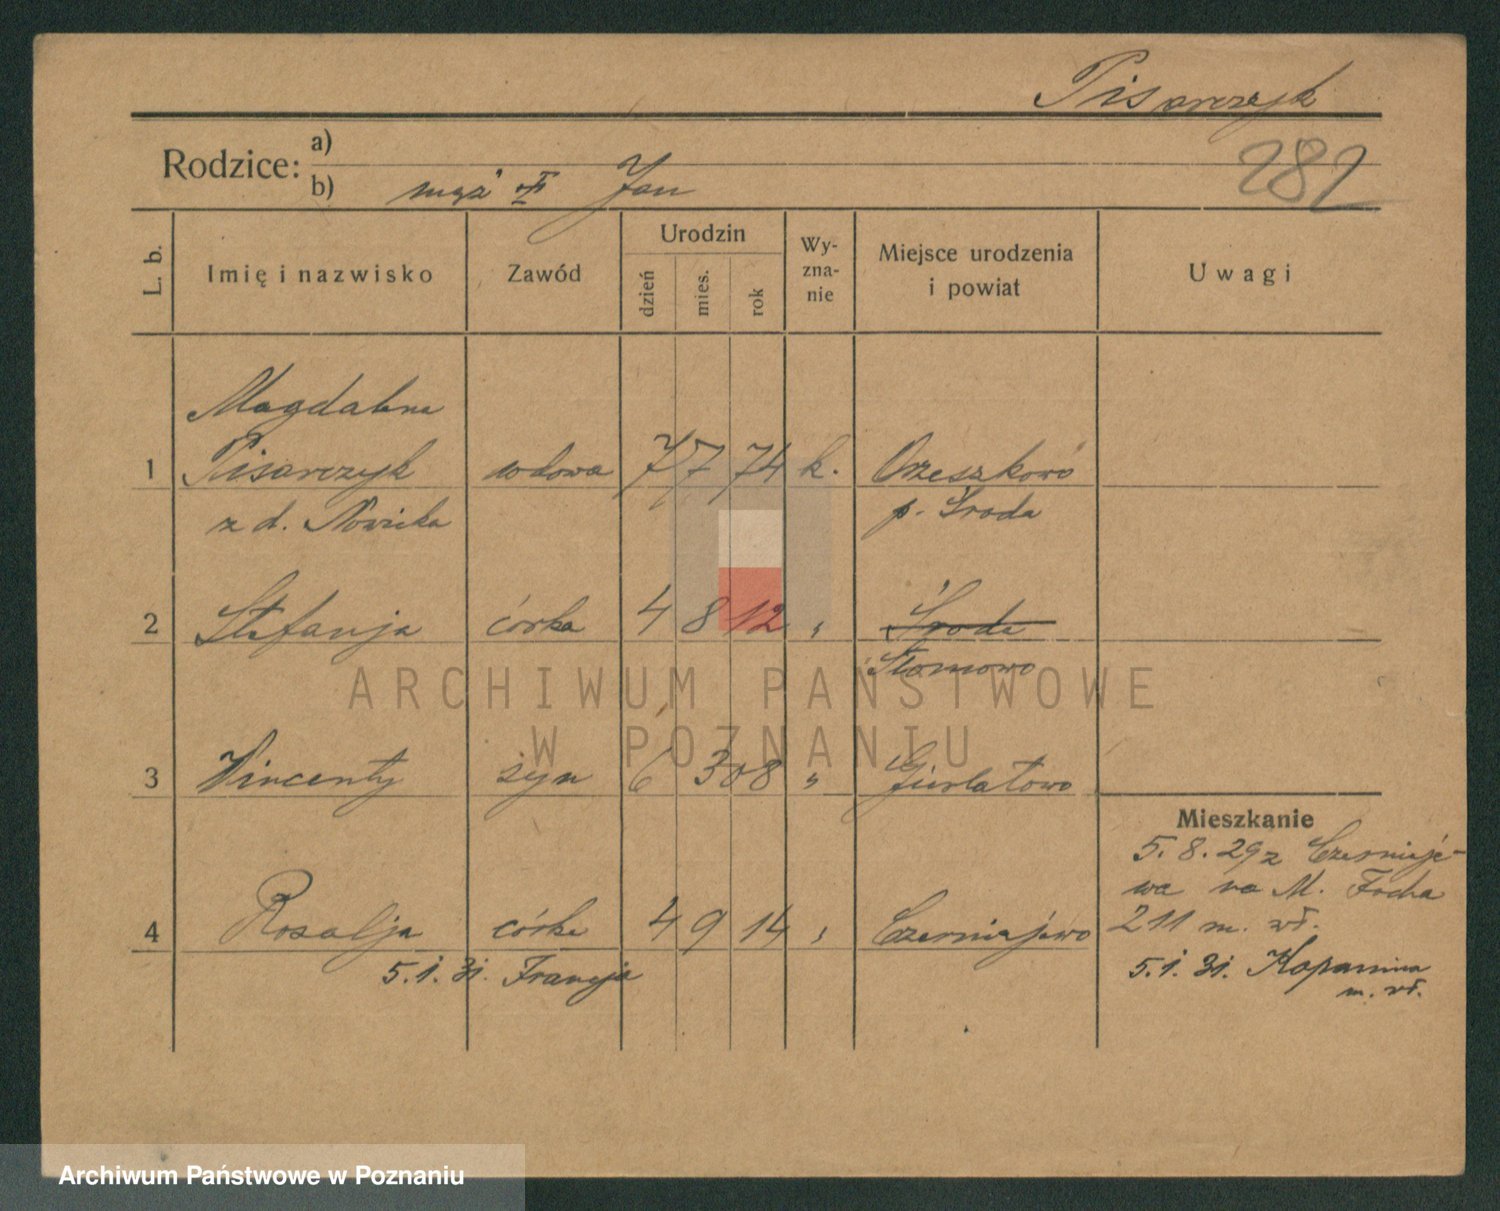 Pisarczyk
282
Rodzice: a)
b) mąż † Jan
L. b. Imię i nazwisko Zawód Urodzin dzień mies. rok Wyznanie Miejsce urodzenia i powiat Uwagi
Magdalena
1 Pisarczyk wdowa 7 7 74 k. Orzeszkowo
z d. Nowicka p. Środa
2 Stefanja córka 4 8 12 „ Środa
Słomowo
3 Wincenty syn 6 3 08 „ Giurłatowo
Mieszkanie
5.8.29 z Czerniejewa na M. Focha
211 m. wł.
4 Rozalja córka 4 9 14 „ Czerniejewo
5.1.31. Francja
5.1.31. Kopanina
m. wł.
ARCHIWUM PAŃSTWOWE
W POZNANIU
Archiwum Państwowe w Poznaniu